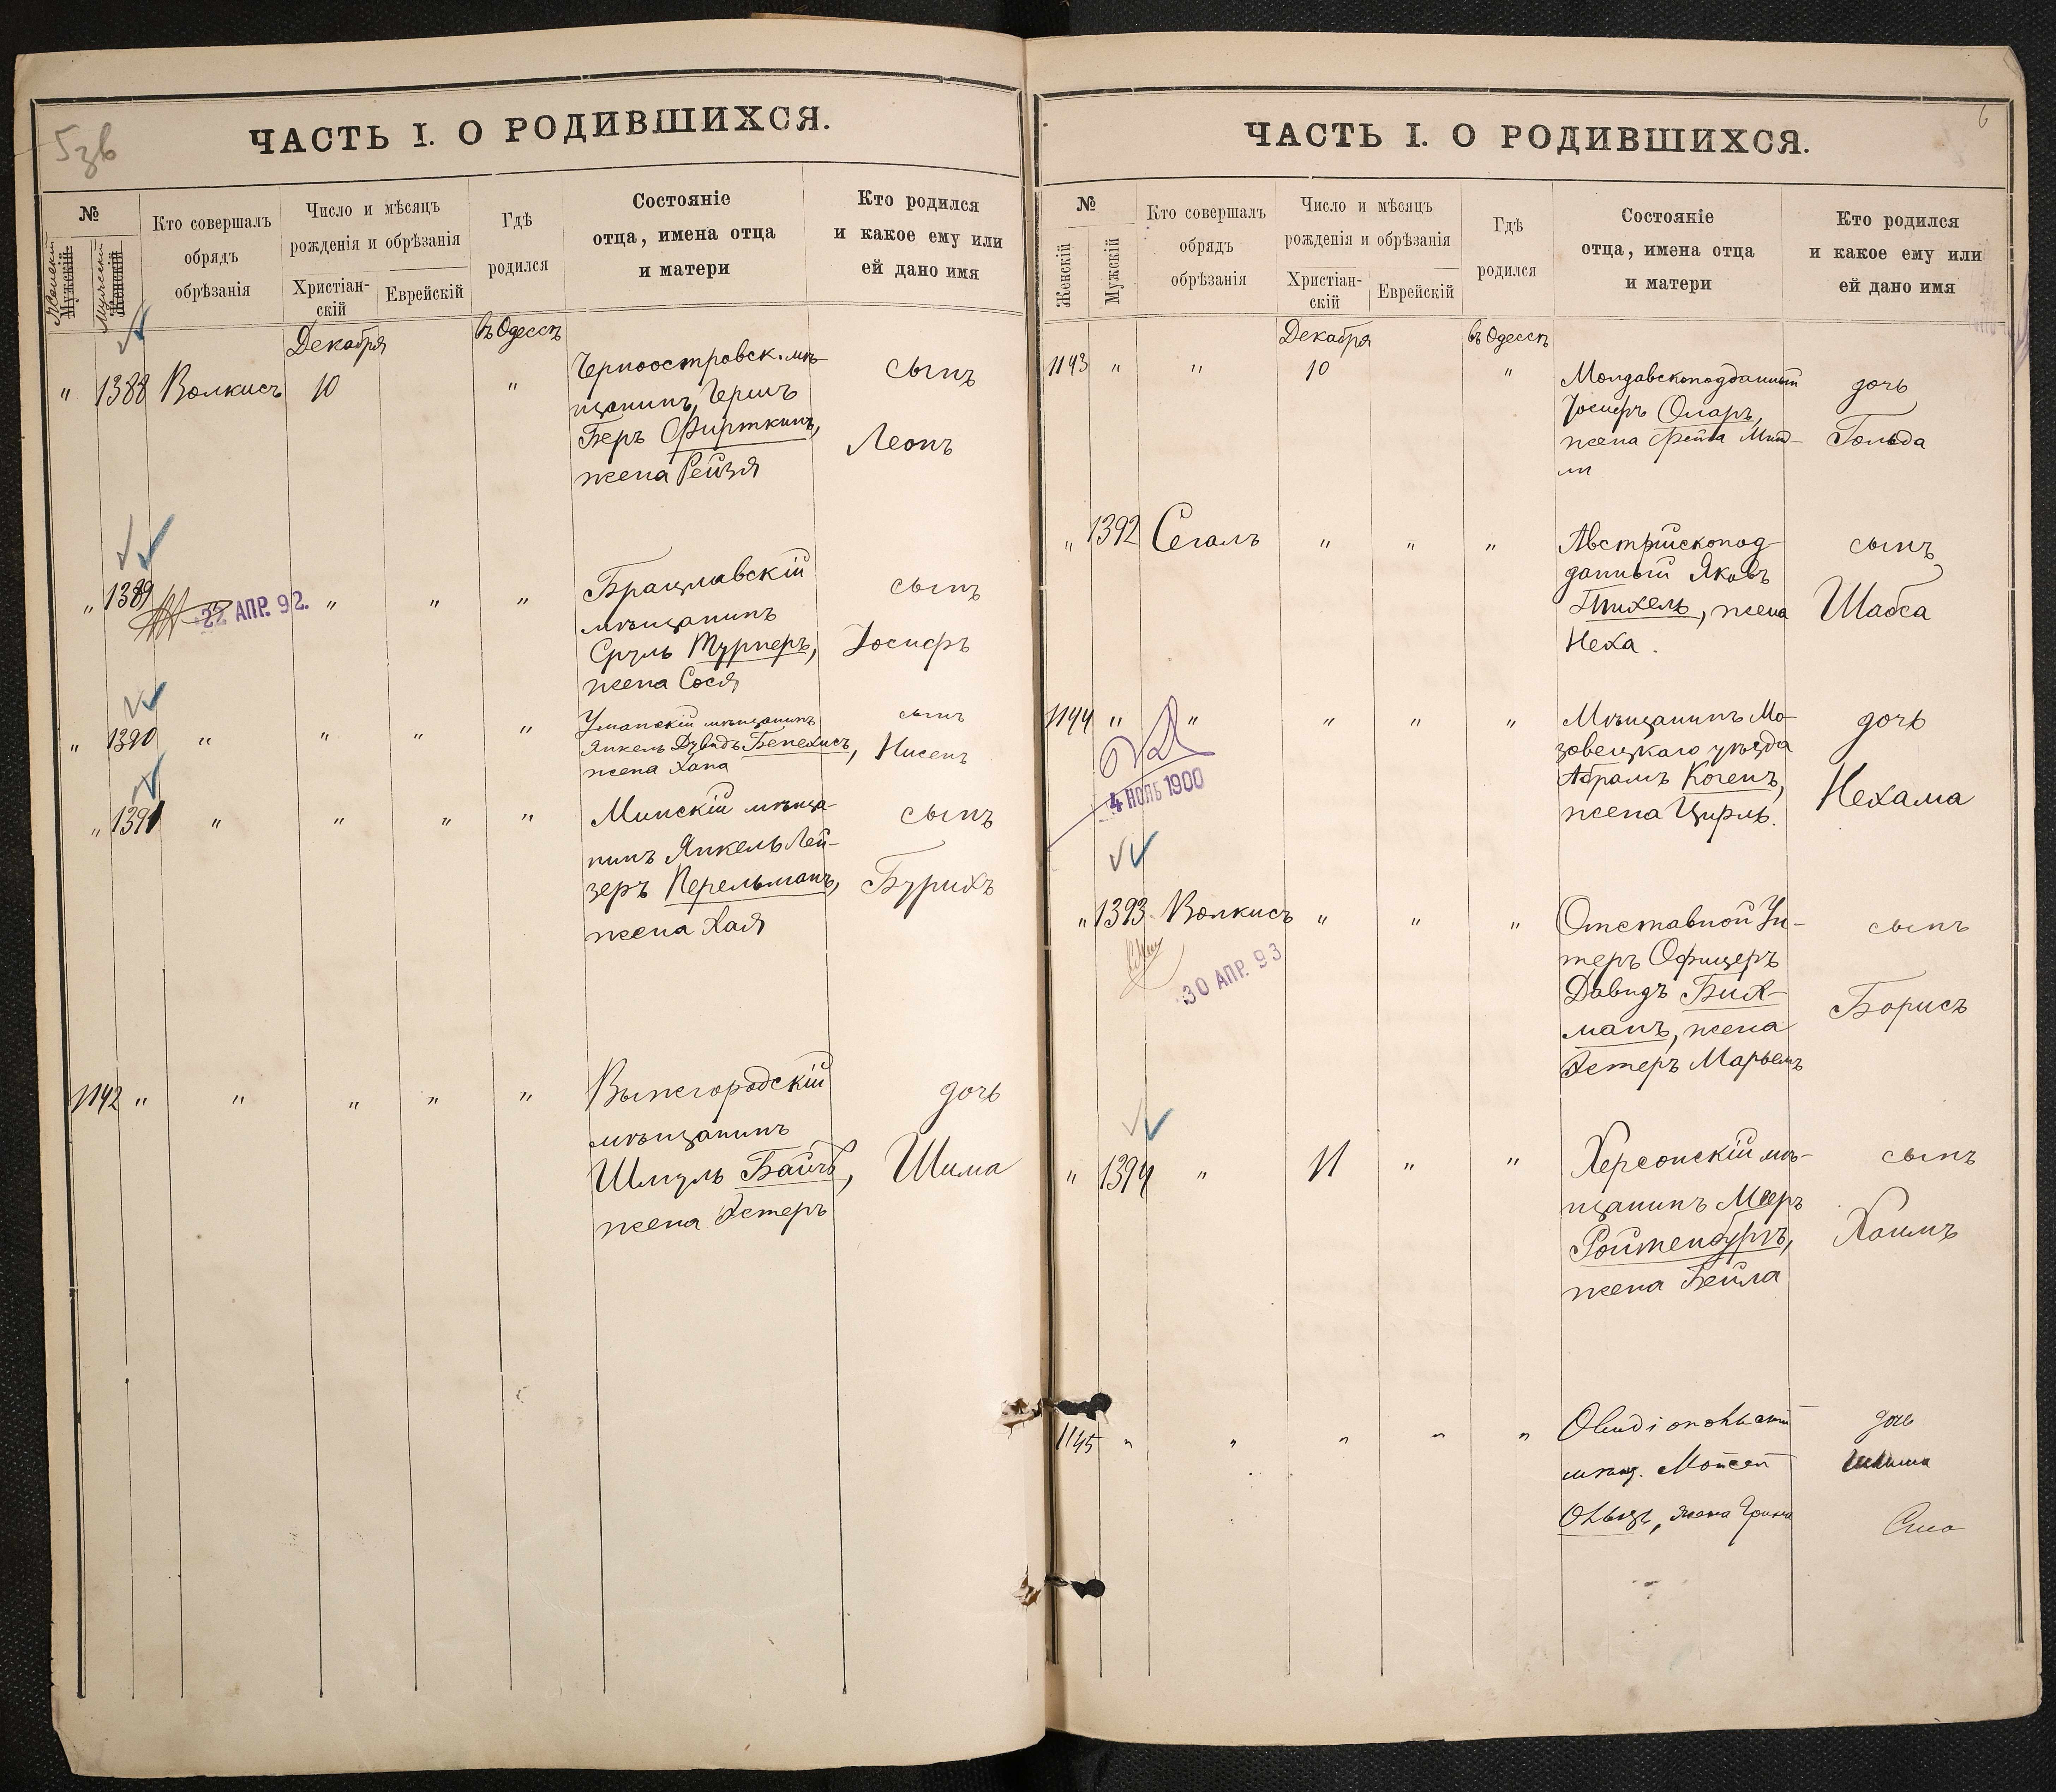 5зв
ЧАСТЬ I. О РОДИВШИХСЯ.
№
Женскій
Мужскій
Мужскій
Женскій
Кто совершалъ
обрядъ
обрѣзанія
Число и мѣсяцъ
рожденія и обрѣзанія
Христіан-
скій
Еврейскій
Гдѣ
родился
Состояніе
отца, имена отца
и матери
Кто родился
и какое ему или
ей дано имя
Декабря
въ Одессѣ
" 1388 Волкисъ 10 "
Черноостровск. мѣ-
щанинъ, Гершъ
Беръ Фирткинъ,
жена Рейзя
сынъ
Леонъ
" 1389 " " "
22 АПР. 92.
Брацлавскій
мѣщанинъ
Сруль Турнеръ,
жена Сося
сынъ
Іосифъ
" 1390 " " " "
Уманскій мѣщанинъ
Янкель Дувидъ Бенехисъ,
жена Хана
сынъ
Нисенъ
" 1391 " " " "
Минскій мѣща-
нинъ Янкель Лей-
зеръ Перельманъ,
жена Хая
сынъ
Бурихъ
1142 " " " " "
Вышегородскій
мѣщанинъ
Шмуль
жена Эстеръ
дочь
Шима
6
ЧАСТЬ I. О РОДИВШИХСЯ.
№
Женскій
Мужскій
Кто совершалъ
обрядъ
обрѣзанія
Число и мѣсяцъ
рожденія и обрѣзанія
Христіан-
скій
Еврейскій
Гдѣ
родился
Состояніе
отца, имена отца
и матери
Кто родился
и какое ему или
ей дано имя
Декабря
въ Одессѣ
1143 " " 10 "
Молдавскоподданный
Іосифъ Оларъ,
жена Фейга Минд-
ли
дочь
Гольда
" 1392 Сегалъ " " "
Австрійскопод-
данный Яковъ
жена
Неха.
сынъ
Шабса
1144 " " " " "
4 НОЯБ 1900
Мѣщанинъ Ма-
зовецкаго уѣзда
Абрамъ Когенъ,
жена Цирль.
дочь
Нехама
" 1393 Волкисъ " " "
30 АПР. 93
Отставной Ун-
теръ Офицеръ
Давидъ Бих-
манъ, жена
Эстеръ Марьемъ
сынъ
Борисъ
" 1394 " 11 " "
Херсонскій мѣ-
щанинъ Мееръ
Ройтенбургъ,
жена Бейла
сынъ
Хаимъ
1145 " " " " "
мѣщ. Мойсей
жена
дочь